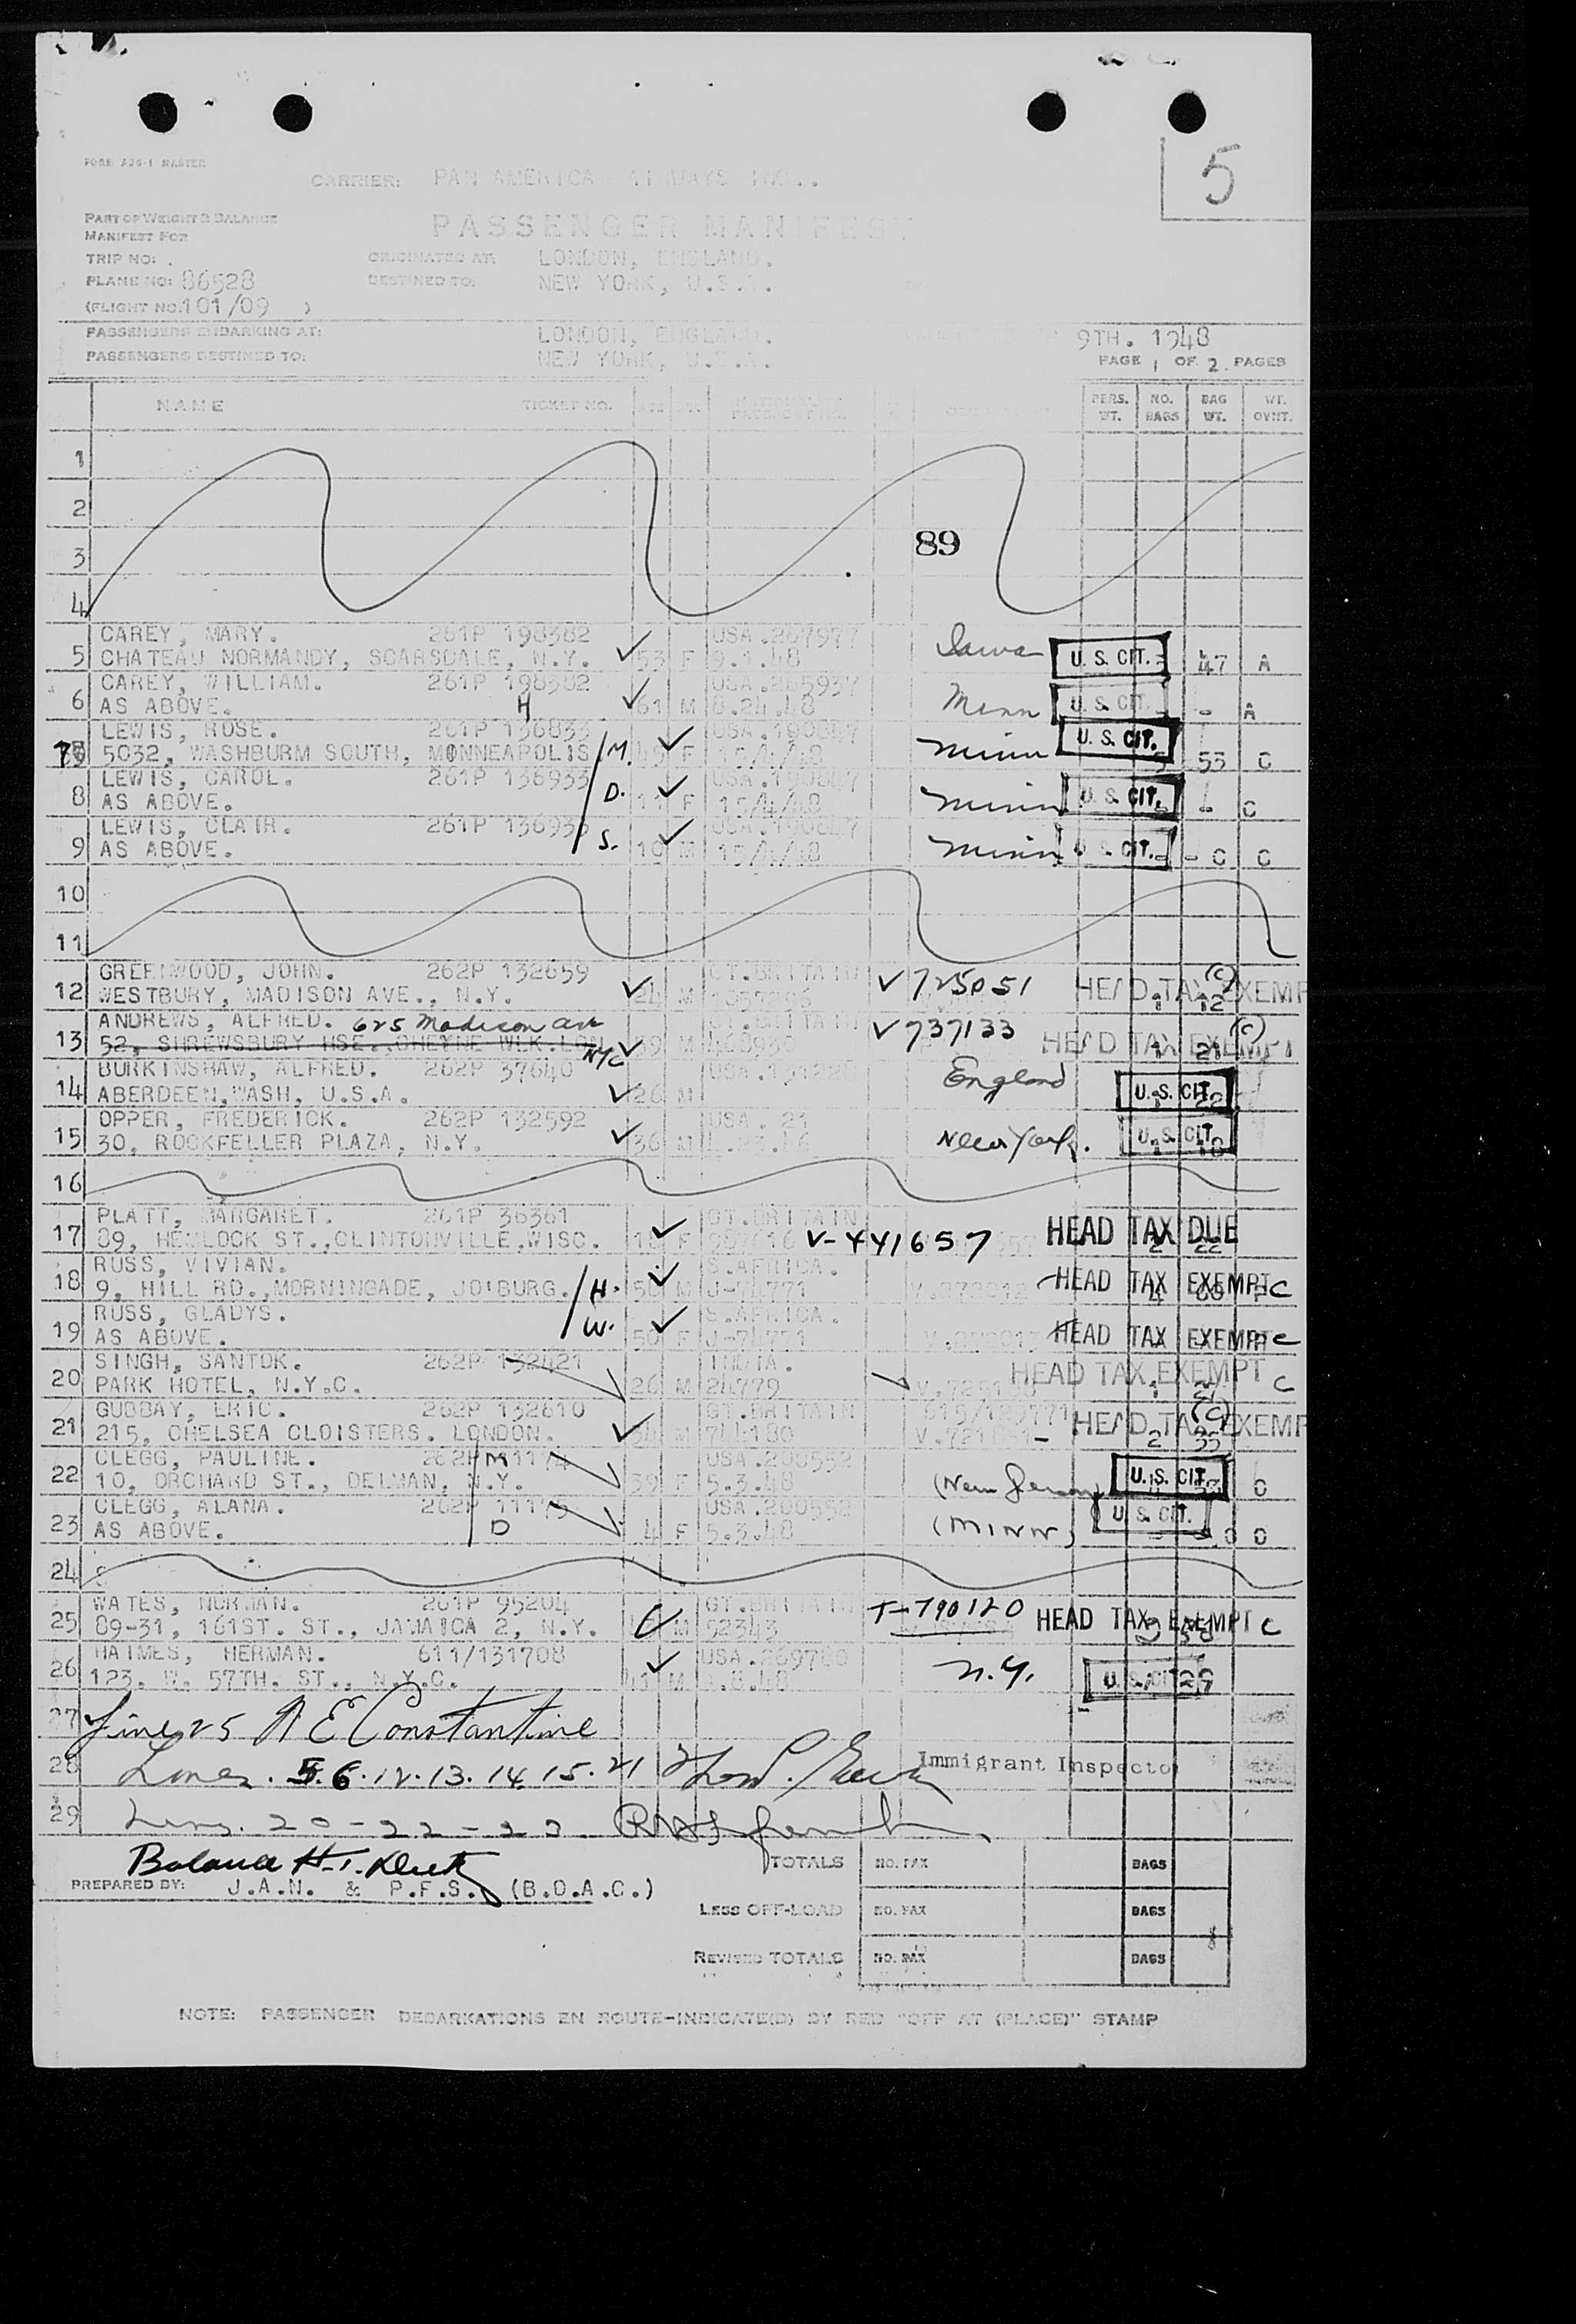 5
FORM A26-1 MASTER
CARRIER: PAN AMERICA AIRWAYS INC..
PART OF WEIGHT & BALANCE
MANIFEST FOR
PASSENGER MANIFEST
TRIP NO: . ORIGINATED AT: LONDON, ENGLAND.
PLANE NO: 86528 DESTINED TO: NEW YORK, U.S.A.
(FLIGHT NO. 101/09 )
PASSENGERS EMBARKING AT: LONDON, ENGLAND. 9TH. 1948
PASSENGERS DESTINED TO: NEW YORK, U.S.A. PAGE 1 OF 2. PAGES
NAME TICKET NO. PERS. WT. NO. BAGS BAG WT. WT. OVHT.
1
2
3 89
4
CAREY, MARY. 261P 198382 USA.267977
5 CHATEAU NORMANDY, SCARSDALE, N.Y. 53 F 9.1.48 Iowa U. S. CIT. 47 A
CAREY, WILLIAM. 261P 198382 USA.265937
6 AS ABOVE. H 61 M 8.24.48 Minn U. S. CIT. - A
LEWIS, ROSE.
7 5032, WASHBURM SOUTH, MINNEAPOLIS M. F 15/4/48 Minn U. S. CIT. 53 C
LEWIS, CAROL. 261P 136933
8 AS ABOVE. D. 11 F 15/4/48 Minn U. S. CIT. - C
LEWIS, CLAIR. 261P 136933
9 AS ABOVE. S. 10 M 15/4/48 Minn U. S. CIT. - C C
10
11
GREENWOOD, JOHN. 262P 132659 GT.BRITAIN
12 WESTBURY, MADISON AVE., N.Y. 24 M V725051 HEAD TAX EXEMP (C) 1 12
ANDREWS, ALFRED. 625 Madison Ave GT.BRITAIN
13 52, SHREWSBURY HSE., CHEYNE WLK.LON NYC M V737133 HEAD TAX EXEMPT (C) 1 21
BURKINSHAW, ALFRED. 262P 37640 England
14 ABERDEEN,WASH, U.S.A. 26 M U. S. CIT.
OPPER, FREDERICK. 262P 132592 USA. 21
15 30, ROCKFELLER PLAZA, N.Y. 36 M New York. U. S. CIT.
16
PLATT, MARGARET. 261P 36361 GT.BRITAIN
17 89, HEMLOCK ST.,CLINTONVILLE,WISC. F V-441657 HEAD TAX DUE 2 22
RUSS, VIVIAN. S.AFRICA.
18 9, HILL RD.,MORNINGADE, JO'BURG. H. M J-74771 HEAD TAX EXEMPT C
RUSS, GLADYS. S.AFRICA.
19 AS ABOVE. W. 50 F J-74771 HEAD TAX EXEMPT C
SINGH, SANTOK. 262P 132421 INDIA.
20 PARK HOTEL, N.Y.C. 26 M 24779 HEAD TAX EXEMPT C
GUBBAY, ERIC. 262P 132610 GT.BRITAIN
21 215, CHELSEA CLOISTERS. LONDON. M HEAD TAX EXEMP (C) 2 35
CLEGG, PAULINE. M USA.200552
22 10, ORCHARD ST., DELMAN, N.Y. 39 F 5.3.48 (New Jersey) U. S. CIT. C
CLEGG, ALANA. USA.200552
23 AS ABOVE. D 4 F 5.3.48 (MINN) U. S. CIT. C C
24
WATES, NORMAN. 261P 95204 GT.BRITAIN T-790120
25 89-31, 161ST. ST., JAMAICA 2, N.Y. M 52343 HEAD TAX EXEMPT C
HAIMES, HERMAN. 611/131708 USA.269760
26 123, W. 57TH. ST., N.Y.C. M N.Y. U. S. CIT.
27 Line 25 A E Constantine
28 Lines. 5.6.12.13.14.15.21 Immigrant Inspector
29 Lines. 20-22-23
Balance
PREPARED BY: J.A.N. & P.F.S. (B.O.A.C.)
TOTALS NO. PAX BAGS
LESS OFF-LOAD NO. PAX BAGS
REVISED TOTALS NO. PAX BAGS
NOTE: PASSENGER DEBARKATIONS EN ROUTE-INDICATE(D) BY RED "OFF AT (PLACE)" STAMP